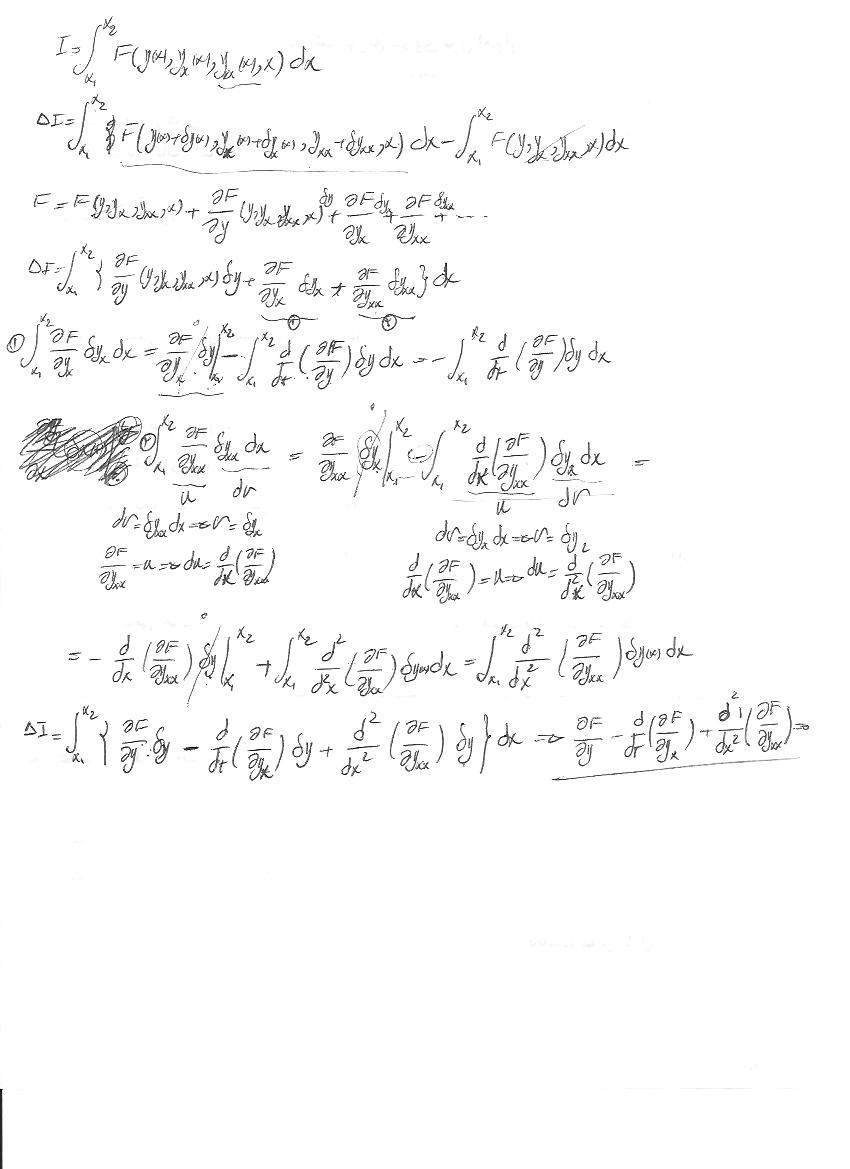 I = ∫_{x₁}^{x₂} F(y(x), y_x(x), y_xx(x), x) dx
ΔI = ∫_{x₁}^{x₂} F(y(x)+δy(x), y_x(x)+δy_x(x), y_xx+δy_xx, x) dx − ∫_{x₁}^{x₂} F(y, y_x, y_xx, x) dx
F = F(y, y_x, y_xx, x) + ∂F/∂y (y, y_x, y_xx, x) δy + ∂F/∂y_x δy_x + ∂F/∂y_xx δy_xx + ....
ΔI = ∫_{x₁}^{x₂} { ∂F/∂y (y, y_x, y_xx, x) δy + ∂F/∂y_x δy_x + ∂F/∂y_xx δy_xx } dx
① ② 
① ∫_{x₁}^{x₂} ∂F/∂y_x δy_x dx = ∂F/∂y_x δy |_{x₁}^{x₂} − ∫_{x₁}^{x₂} d/dt (∂F/∂y) δy dx = − ∫_{x₁}^{x₂} d/dt (∂F/∂y) δy dx
② ∫_{x₁}^{x₂} ∂F/∂y_xx δy_xx dx = ∂F/∂y_xx δy_x |_{x₁}^{x₂} − ∫_{x₁}^{x₂} d/dx (∂F/∂y_xx) δy_x dx =
u dv u dv
dv = δy_xx dx ⇒ v = δy_x dv = δy_x dx ⇒ v = δy
∂F/∂y_xx = u ⇒ du = d/dx (∂F/∂y_xx) d/dx (∂F/∂y_xx) = u ⇒ du = d²/d²x (∂F/∂y_xx)
= − d/dx (∂F/∂y_xx) δy |_{x₁}^{x₂} + ∫_{x₁}^{x₂} d²/d²x (∂F/∂y_xx) δy(x) dx = ∫_{x₁}^{x₂} d²/dx² (∂F/∂y_xx) δy(x) dx
ΔI = ∫_{x₁}^{x₂} { ∂F/∂y δy − d/dt (∂F/∂y_x) δy + d²/dx² (∂F/∂y_xx) δy } dx ⇒ ∂F/∂y − d/dt (∂F/∂y_x) + d²/dx² (∂F/∂y_xx) = 0